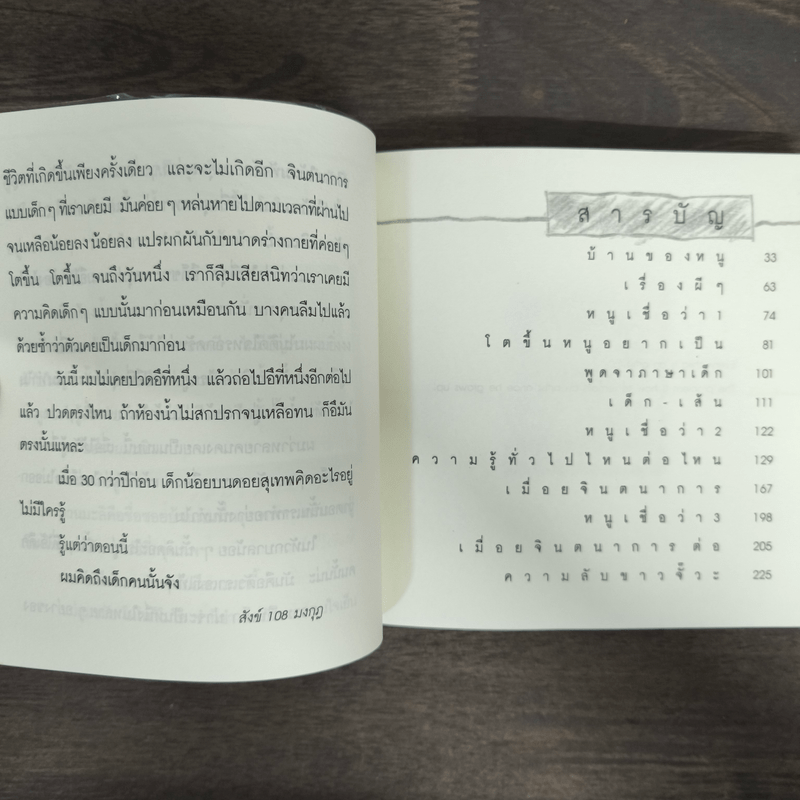 ชีวิตที่เกิดขึ้นเพียงครั้งเดียว และจะไม่เกิดอีก จินตนาการ
แบบเด็กๆ ที่เราเคยมี มันค่อยๆ หล่นหายไปตามเวลาที่ผ่านไป
จนเหลือน้อยลง น้อยลง แปรผกผันกับขนาดร่างกายที่ค่อยๆ
โตขึ้น โตขึ้น จนถึงวันหนึ่ง เราก็ลืมเสียสนิทว่าเราเคยมี
ความคิดเด็กๆ แบบนั้นมาก่อนเหมือนกัน บางคนลืมไปแล้ว
ด้วยซ้ำว่าตัวเคยเป็นเด็กมาก่อน
วันนี้ ผมไม่เคยปวดอึที่หนึ่ง แล้วถ่อไปอึที่หนึ่งอีกต่อไป
แล้ว ปวดตรงไหน ถ้าห้องน้ำไม่สกปรกจนเหลือทน ก็อึมัน
ตรงนั้นแหละ
เมื่อ 30 กว่าปีก่อน เด็กน้อยบนดอยสุเทพคิดอะไรอยู่
ไม่มีใครรู้
รู้แต่ว่าตอนนี้
ผมคิดถึงเด็กคนนั้นจัง
สังข์ 108 มงกุฎ
สารบัญ
บ้านของหนู 33
เรื่องผีๆ 63
หนูเชื่อว่า 1 74
โตขึ้นหนูอยากเป็น 81
พูดจาภาษาเด็ก 101
เด็ก-เส้น 111
หนูเชื่อว่า 2 122
ความรู้ทั่วไปไหนต่อไหน 129
เมื่อยจินตนาการ 167
หนูเชื่อว่า 3 198
เมื่อยจินตนาการต่อ 205
ความลับขาวจั๊วะ 225